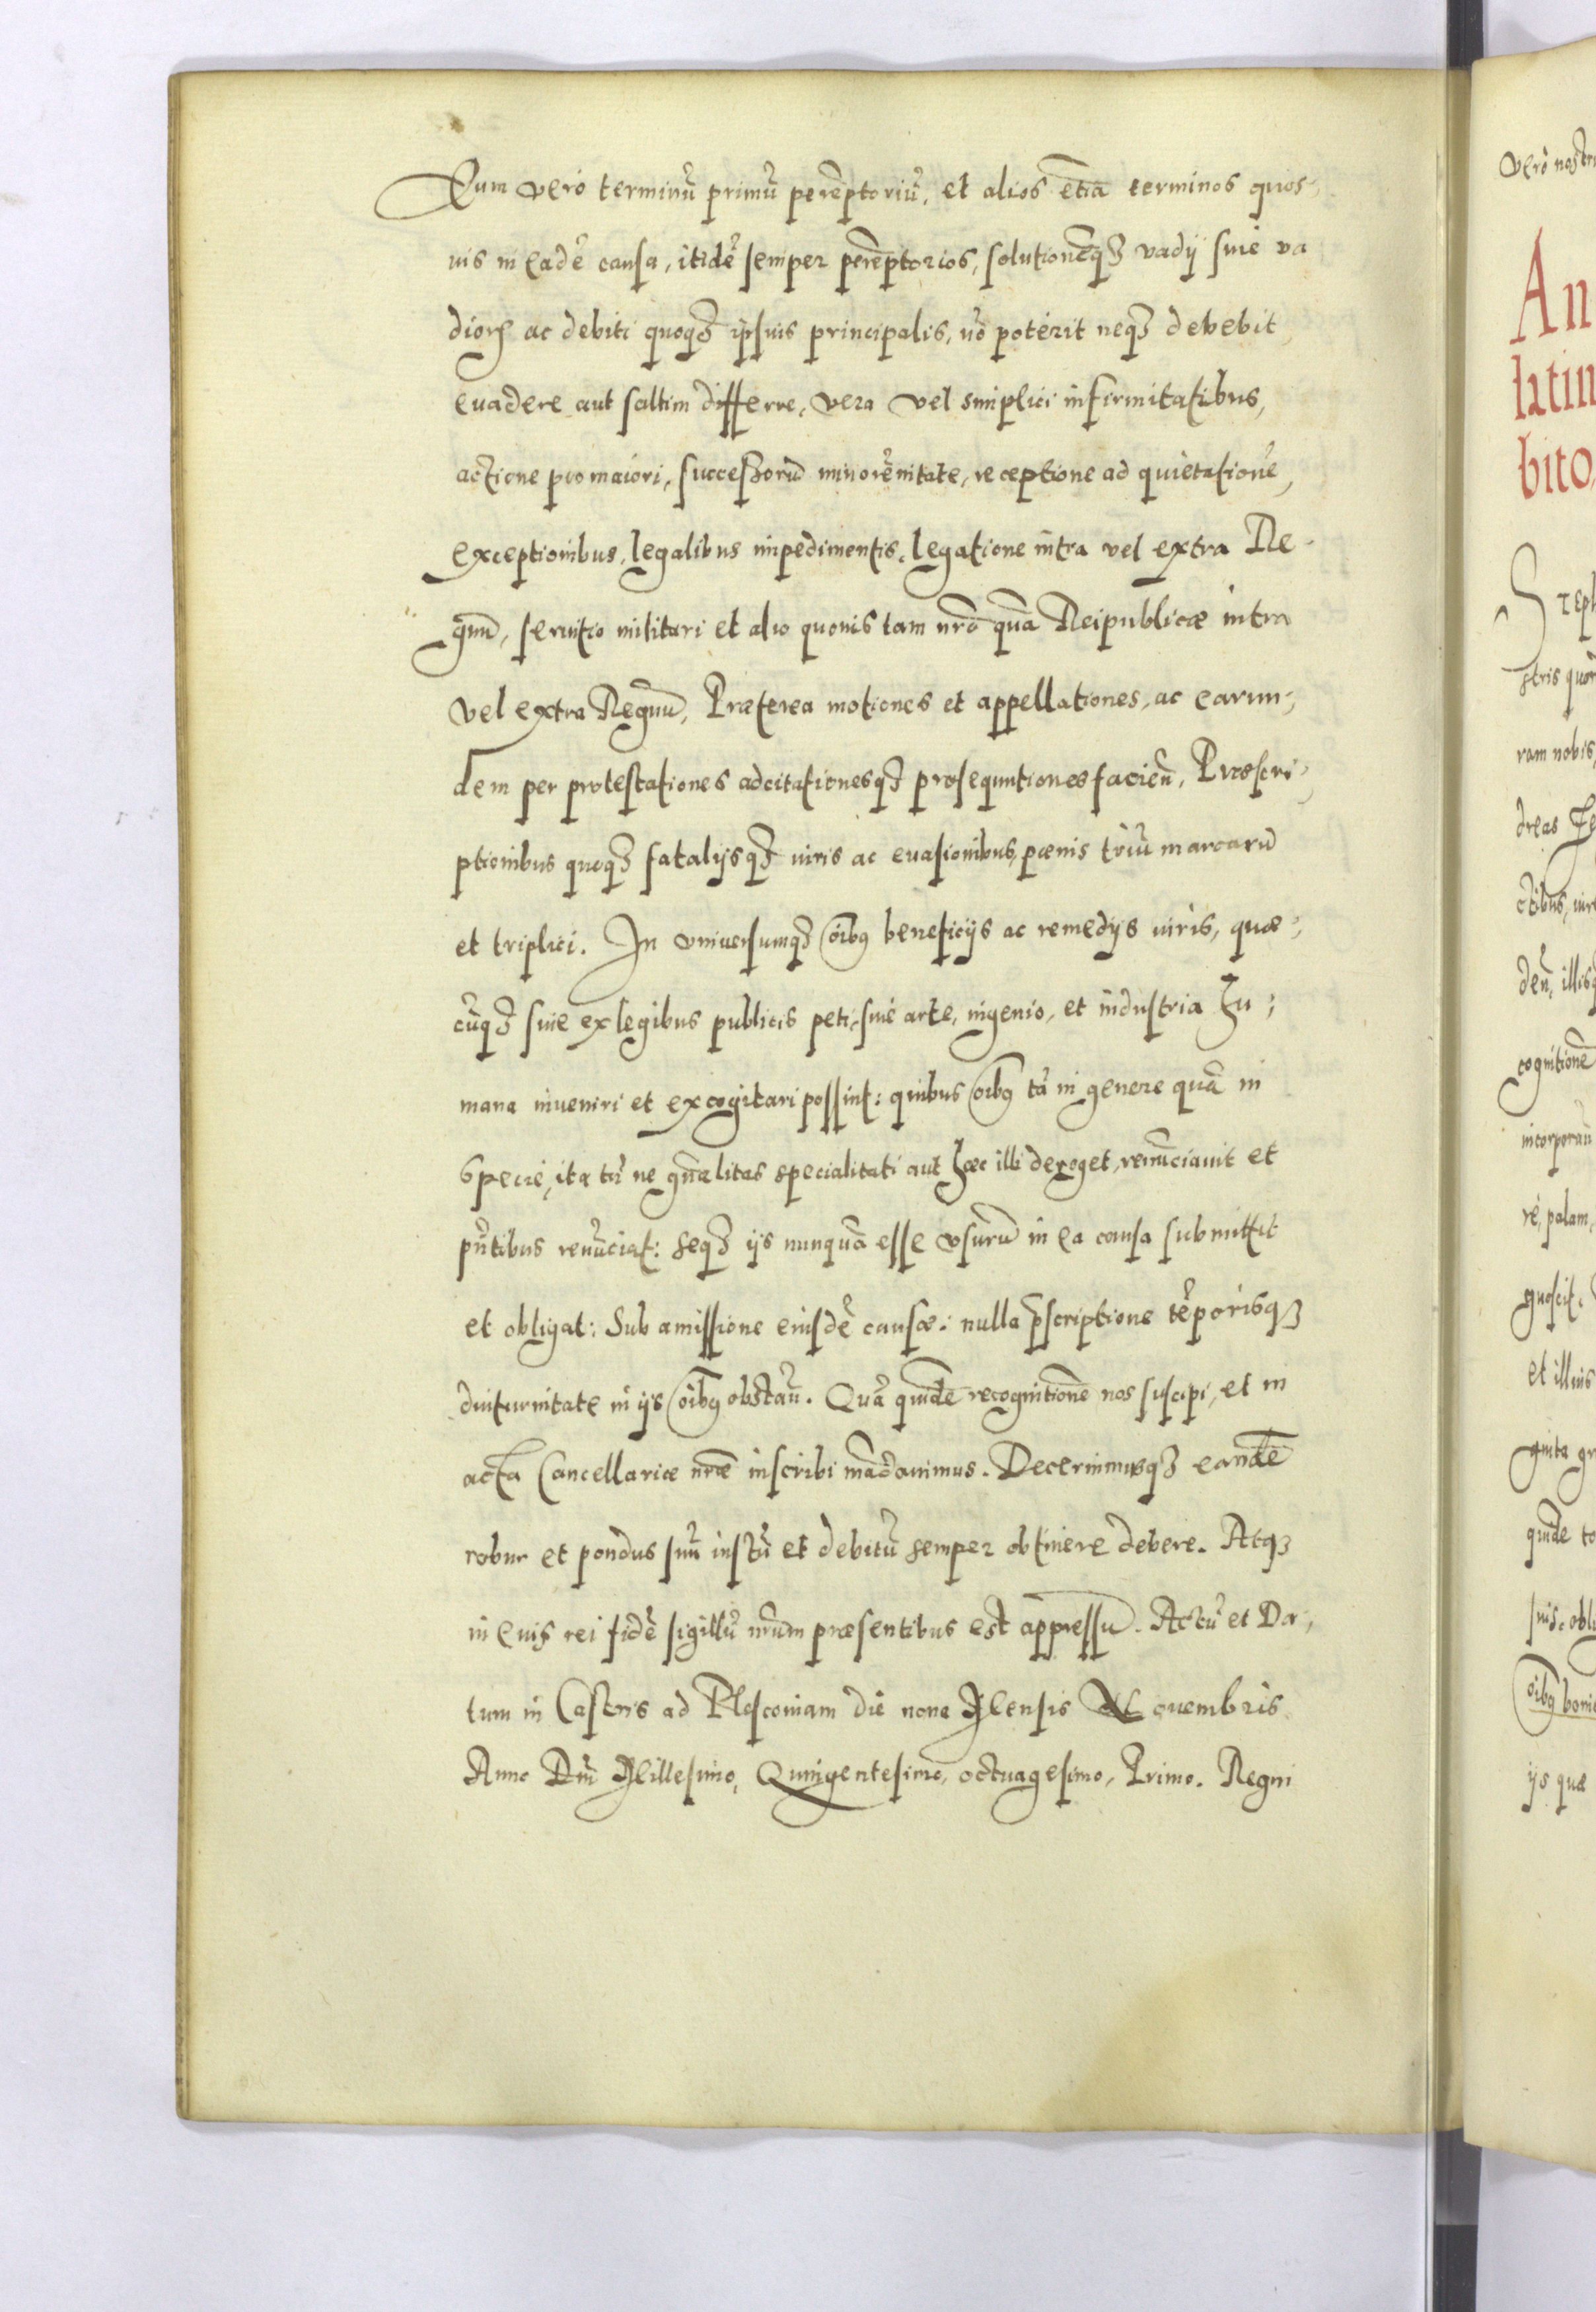 Eum vero terminũ primũ perẽptoriũ, et alios etiã terminos quos,
uis in eadẽ causa, itidẽ semper perẽptorios, solutionẽq3 vadij siue va
dioꝝ ac debiti quoq3 ipsius principalis, nõ poterit neq3 debebit
euadere aut saltim differre, vera vel simplici infirmitatibus,
actione pro maiori, successorũ minorẽnitate, receptione ad quietationẽ,
exceptionibus, legalibus impedimentis, legatione intra vel extra Re
gnũ, seruitio militari et alio quouis tam nrõ quã Reipublicæ intra
vel extra Regnũ, Præterea motiones et appellationes, ac earun,
dem per protestationes adcitationesq3 prosequutiones facieñ, Præscri,
ptionibus quoq3 fatalijsq3 iuris ac euasionibus, pœnis triũ marcarũ
et triplici. In vniuersumq3 õibꝯ beneficijs ac remedijs iuris, quæ,
cũq3 siue ex legibus publicis peti, siue arte, ingenio, et industria hu,
mana inueniri et excogitari possint: quibus õibꝯ tã in genere quã in
specie, ita tñ ne gñalitas specialitati aut hæc illi deroget, renũciauit et
pñtibus renũciat: seq3 ijs nunquã esse vsurũ in ea causa submittit
et obligat: Sub amissione eiusdẽ causæ: nulla p̃scriptione tẽporisq3
diuturnitate in ijs õibꝯ obstañ. Quã quidẽ recognitionẽ nos suscipi, et in
acta Cancellariæ nræ̃ inscribi mãdauimus. Decernimusq3 eandẽ
robur et pondus suũ iustũ et debitũ semper obtinere debere. Atq3
in cuiꝯ rei fidẽ sigillũ nr̃um præsentibus est appressũ. Actũ et Da,
tum in Castris ad Plesconiam die nona Mensis Nouembris
Anno Dñi Millesimo, Quingentesimo, octuagesimo, Primo. Regni
vero nostri
An
latin
bito,
Steph
stris quor
ram nobis,
dreas
ctibus, iur
deñ, illisq
cognitionẽ
incorporañ
re, palam,
gnoscit:
et illius
ginta gr
quidẽ to
suis, obli
õibꝯ bonis
ijs quæ